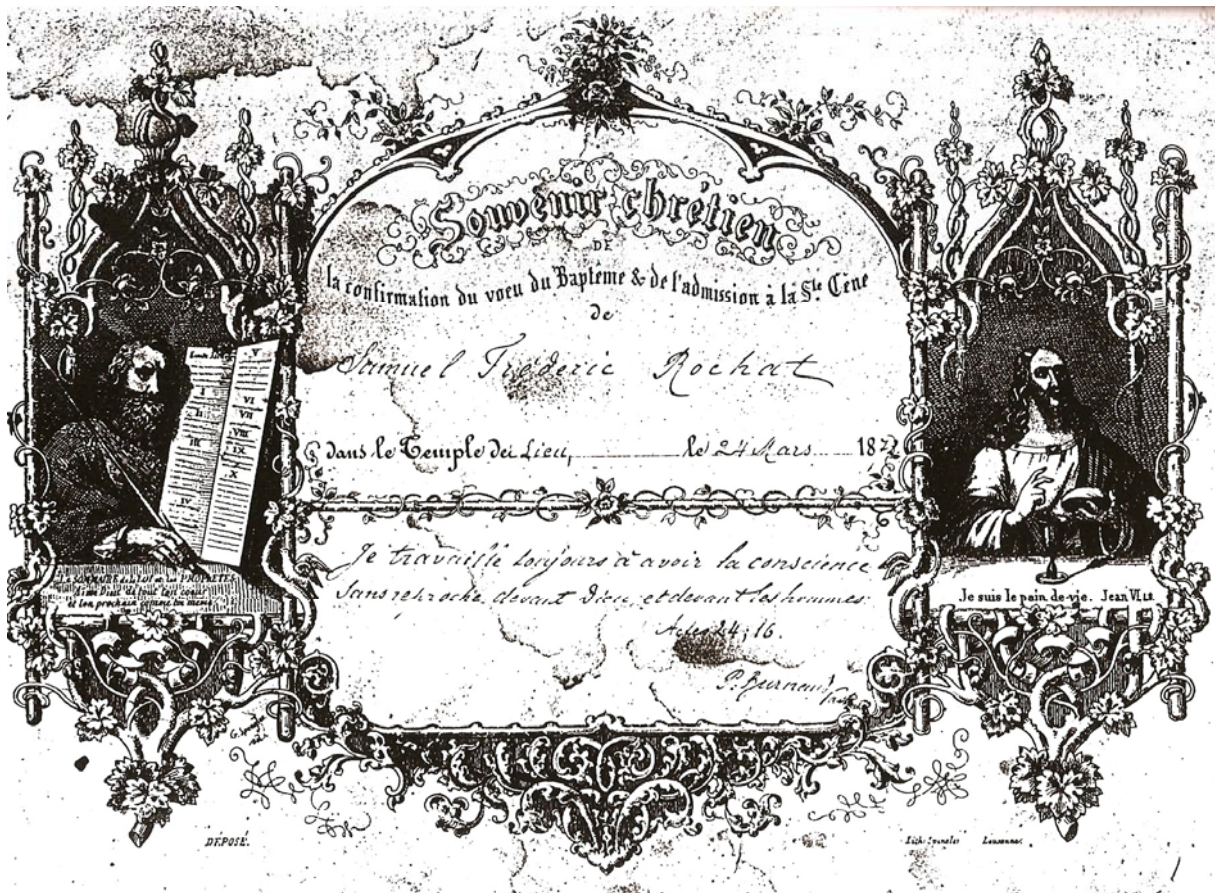 Souvenir chrétien
DE
la confirmation du voeu du Baptême & de l'admission à la Ste. Cène
de
Samuel Fréderic Rochat
dans le Temple du Lieu, le 24 Mars 187
Je travaille toujours à avoir la conscience
sans reproche devant Dieu, et devant les hommes.
Actes 24; 16.
P. Burnand
V
I
II
III
IV
VI
VII
VIII
IX
X
LE SOMMAIRE de la LOI et les PROPHETES
Aime Dieu de tout ton coeur
et ton prochain comme toi même
Je suis le pain de vie. Jean VI.
DÉPOSÉ.
Lith. Spengler Lausanne.